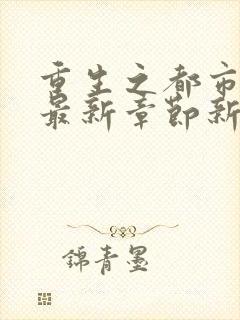 重生之都市
最新章節新
錦青墨